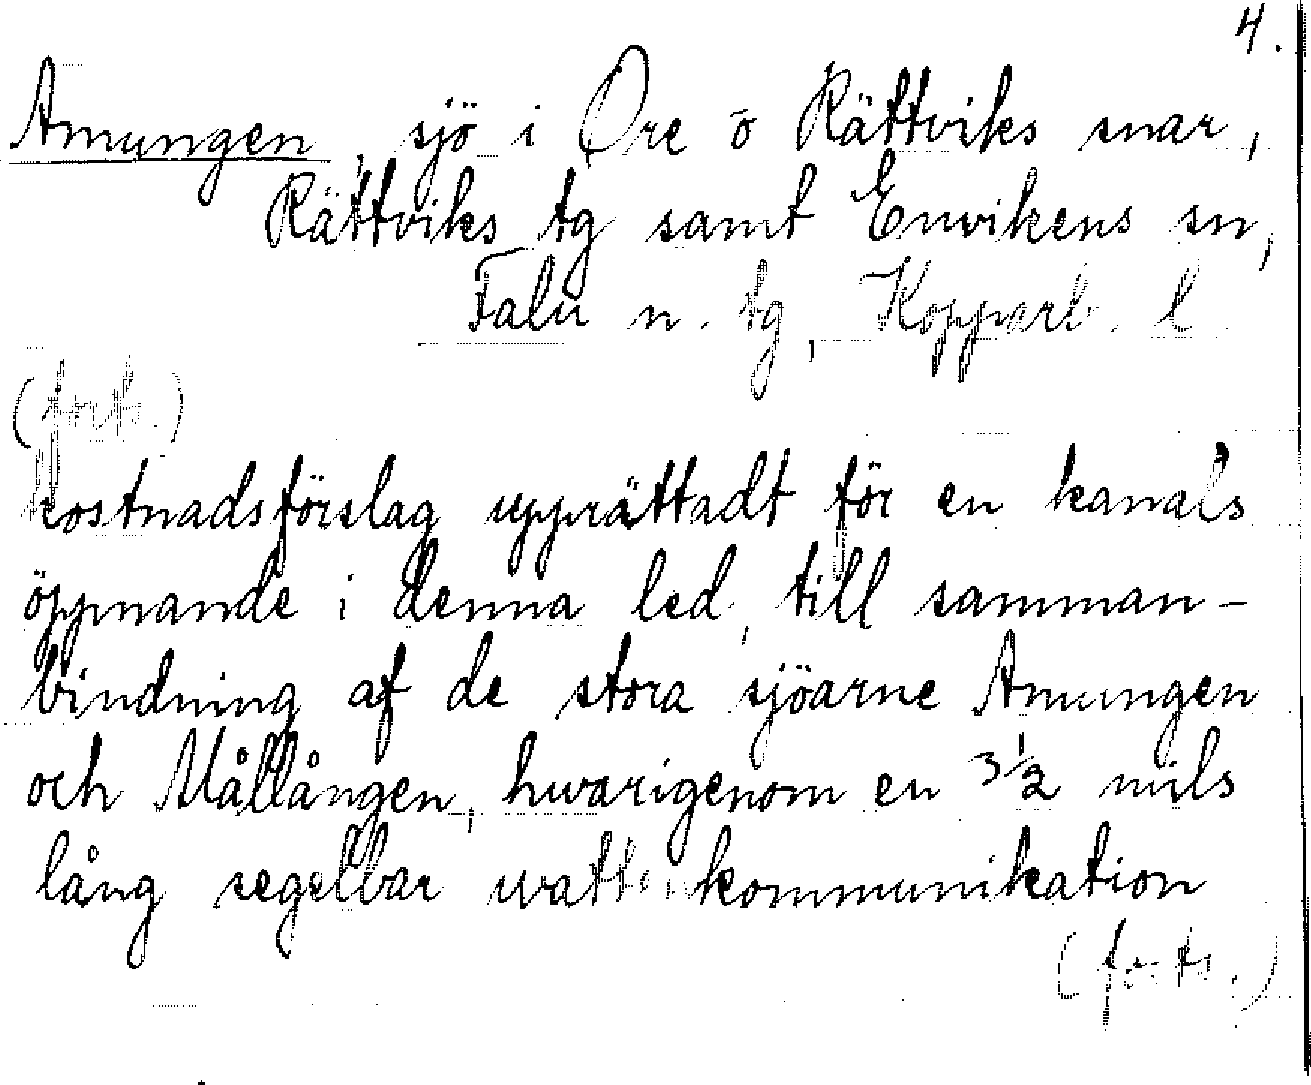 4.
Amungen, sjö i Ore o Rättviks snar,
Rättviks tg samt Envikens sn,
Falu n. tg, Kopparb. l.
(forts.)
kostnadsförslag upprättadt för en kanals
öppnande i denna led, till samman-
bindning af de stora sjöarne Amungen
och Mållången, hwarigenom en 3 1/2 mils
lång segelbar wattenkommunikation
(forts.)